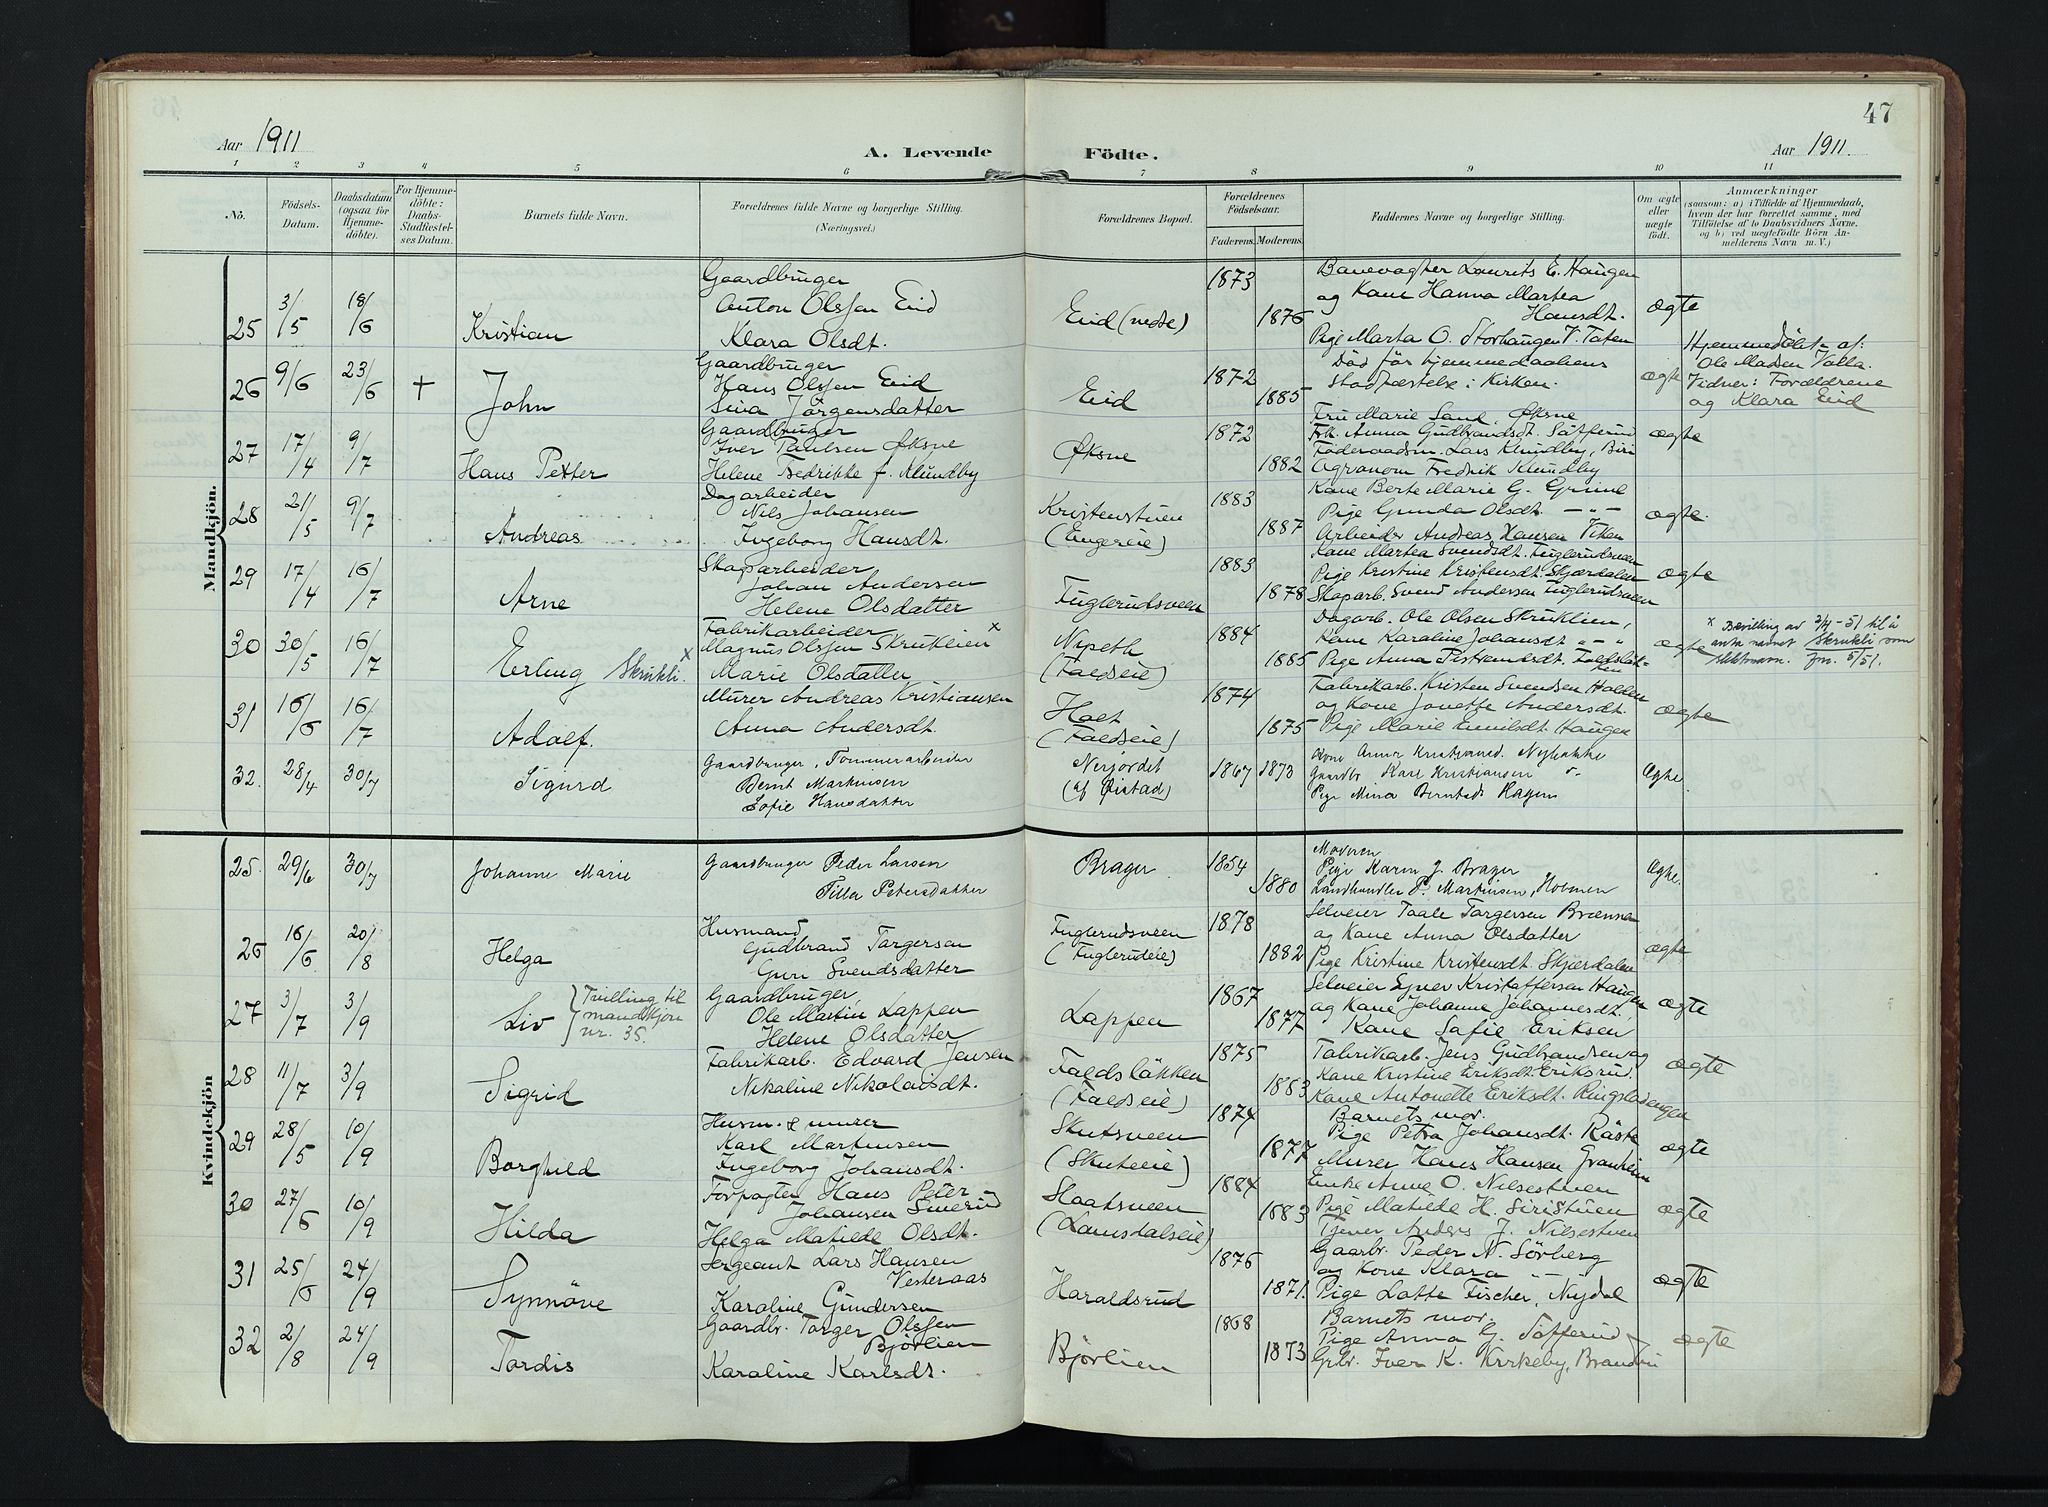 47
Aar 1911
A. Levende Födte.
Aar 1911.
1 2 3 4 5 6 7 8 9 10 11
No.
Födsels-Datum.
Daabsdatum (ogsaa for Hjemme-döbte).
For Hjemme-döbte: Daabs-Stadfæstel-ses Datum.
Barnets fulde Navn.
Forældrenes fulde Navne og borgerlige Stilling.
(Næringsvei.)
Forældrenes Bopæl.
Forældrenes Födselsaar.
Faderens. Moderens.
Faddernes Navne og borgerlige Stilling.
Om ægte eller uægte födt.
Anmærkninger
(saasom: a) i Tilfælde af Hjemmedaab,
hvem der har forrettet samme, med
Tilföielse af to Daabsvidners Navne.
og b) ved uægtefödte Börn An-
melderens Navn m. V.)
Mandkjön.
25 3/5 18/6 Kristian
Gaardbruger
Anton Olssen Eid
Klara Olsdt.
Eid (nedre) 1873 1876
Banevagter Laurits E. Haugen
og Kone Hanna Martea
Hansdt.
Pige Marta O. Storhaugen V. Toten
ægte
26 9/6 23/6 + John
Gaardbruger
Hans Olssen Eid
Sina Jörgensdatter
Eid 1872 1885
Död før hjemmedaabens
stadfæstelse i Kirken.
ægte
Hjemmedöbt af:
Ole Madsen Valla.
Vidner: Forældrene
og Klara Eid
27 17/4 9/7 Hans Petter
Gaardbruger
Iver Paulsen Øksne
Helene Fredrikke f. Klundby
Øksne 1872 1882
Fru Marie Sand Øksne
Frk. Anna Gudbrandsdt. Säfferud
Föderaadsm. Lars Klundby, Biri
Agronom Fredrik Klundby
ægte
28 21/5 9/7 Andreas
Dagarbeider
Nils Johansen
Ingeborg Hansdt.
Kristenstuen
(Engereie) 1883 1887
Kone Berte Marie G. Grind
Pige Gunda Olsdt. — " —
Arbeider Andreas Hansen Viken
ægte.
29 17/4 16/7 Arne
Skogarbeider
Johan Andersen
Helene Olsdatter
Fuglerudsveen 1883 1878
Kone Martea Svendsdt. Fuglerudsveen
Pige Kristine Kristensdt. Skjærdalen
Skogarb. Svend Andersen Fuglerudsveen
ægte
30 30/5 16/7 Erling Skrukli x
Fabrikarbeider
Magnus Olssen Skruklien x
Marie Olsdatter
Nipeth
(Faldseie) 1884 1885
Dagarb. Ole Olsen Skruklien,
Kone Karoline Johansdt — " —
Pige Anna
ægte
x Bevilling av 3/4-51 til å
anta navnet Skrukli som
slektsnavn. Jm. 5/51.
31 16/6 16/7 Adolf.
Murer Andreas Kristiansen
Anna Andersdt.
Holt
(Faldseie) 1874 1875
Fabrikarb. Kristen Svendsen Holten
og Kone Jonette Andersdt.
Pige Marie Emilsdt. Haugen
ægte
32. 28/4 30/7 Sigurd
Gaardbruger, Tømmerarbeider
Bernt Martinsen
Sofie Hansdatter
Nerjordet
(af Øistad) 1867 1873
Kone Anna Nybakke
Gaardbr Karl Kristiansen "
Pige Mina Berntsdt. Hagen
Ægte.
Kvindekjön
25. 29/6 30/7 Johanne Marie
Gaardbruger Peder Larsen
Tilla Petersdatter
Brager. 1854 1880
Moderen
Pige Karen J. Brager
Landhandler P. Martinsen, Hovmoen
Ægte.
26 16/6 20/8 Helga
Husmand
Gudbrand Torgersen
Guri Svendsdatter
Fuglerudsveen
(Fuglerudeie) 1878 1882
Selveier Taale Torgersen Brænna
og Kone Anna Olsdatter
Pige Kristine Kristensdt. Skjærdalen
ægte
27 3/7 3/9 Liv
Tvilling til
mandkjön
nr. 35.
Gaardbruger,
Ole Martin Lappen
Helene Olsdatter
Lappen 1867 1877
Selveier Syver Kristoffersen Haugen
og Kone Johanne Johannesdt.,
Kone Sofie Eriksen
ægte
28 11/7 3/9 Sigrid
Fabrikarb. Edvard Jensen
Nikoline Nikolaisdt.
Faldslökken
(Faldseie) 1875 1883
Fabrikarb. Jens Gudbrandsen og
Kone Kristine Eriksdt. Eriksrud.
Kone Antonette Eriksdt. Ringeladengen
ægte
29 28/5 10/9 Borghild
Husm. & murer
Karl Martinsen
Ingeborg Johansdt.
Skutsveen
(Skuteeie) 1874 1877
Barnets mor.
Pige Petra Johansdt. Räste
Murer Hans Hansen Granheim
ægte
30 27/6 10/9 Hilda
Forpagter Hans Peter
Johansen Smerud
Helga Matilde Olsdt.
Slaatsveen
(Lausdalseie) 1884 1883
Enke Anne O. Nilsestuen
Pige Matilde H. Siristuen
Tjener Anders J. Nilsestuen
ægte
31 25/6 24/9 Synnöve
Sergeant Lars Hansen
Vesteraas
Karoline Gundersen
Haraldsrud 1876 1871.
Gaarbr. Peder N. Sörberg
og Kone Klara — " —
Pige Lotte Fischer, Nydal
ægte
32 2/8 24/9 Tordis
Gaardbr. Torger Olssen
Bjørlien
Karoline Karlsdt.
Bjørlien 1868 1873
Barnets mor,
Pige Anna G. Säfferud
Grbr. Iver K. Kirkeby,
ægte